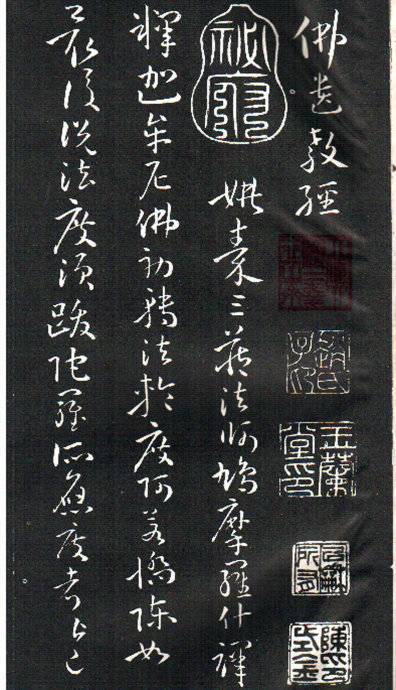 佛遺教經
趙氏子昂
玉蘭堂印
姚秦三藏法師鳩摩羅什譯
釋迦牟尼佛初轉法輪度阿若憍陳如
最後說法度須跋陀羅所應度者皆已